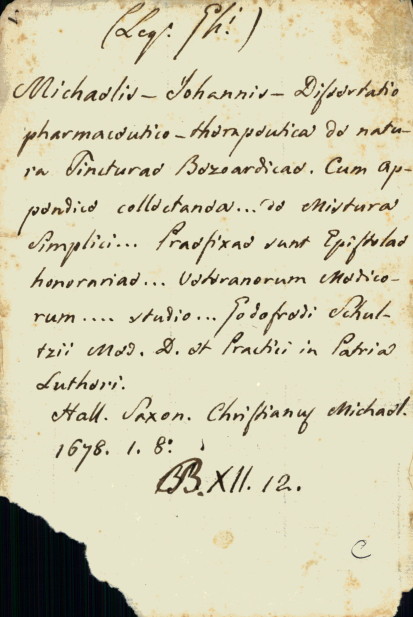 (Leg. Gh.)
Michaelis - Johannis - Dissertatio
pharmaceutico - therapeutica de natu-
ra Tincturae Bezoardicae. Cum Ap-
pendice collectanea... de Mistura
Simplici... Praefixae sunt Epistolae
honorariae... Veteranorum Medico-
rum .... studio... Godofredi Schul-
tzii Med. D. et Practici in Patria
Lutheri.
Hall. Saxon. Christianus Michael.
1678. 1. 8º
BB. XII. 12.
C